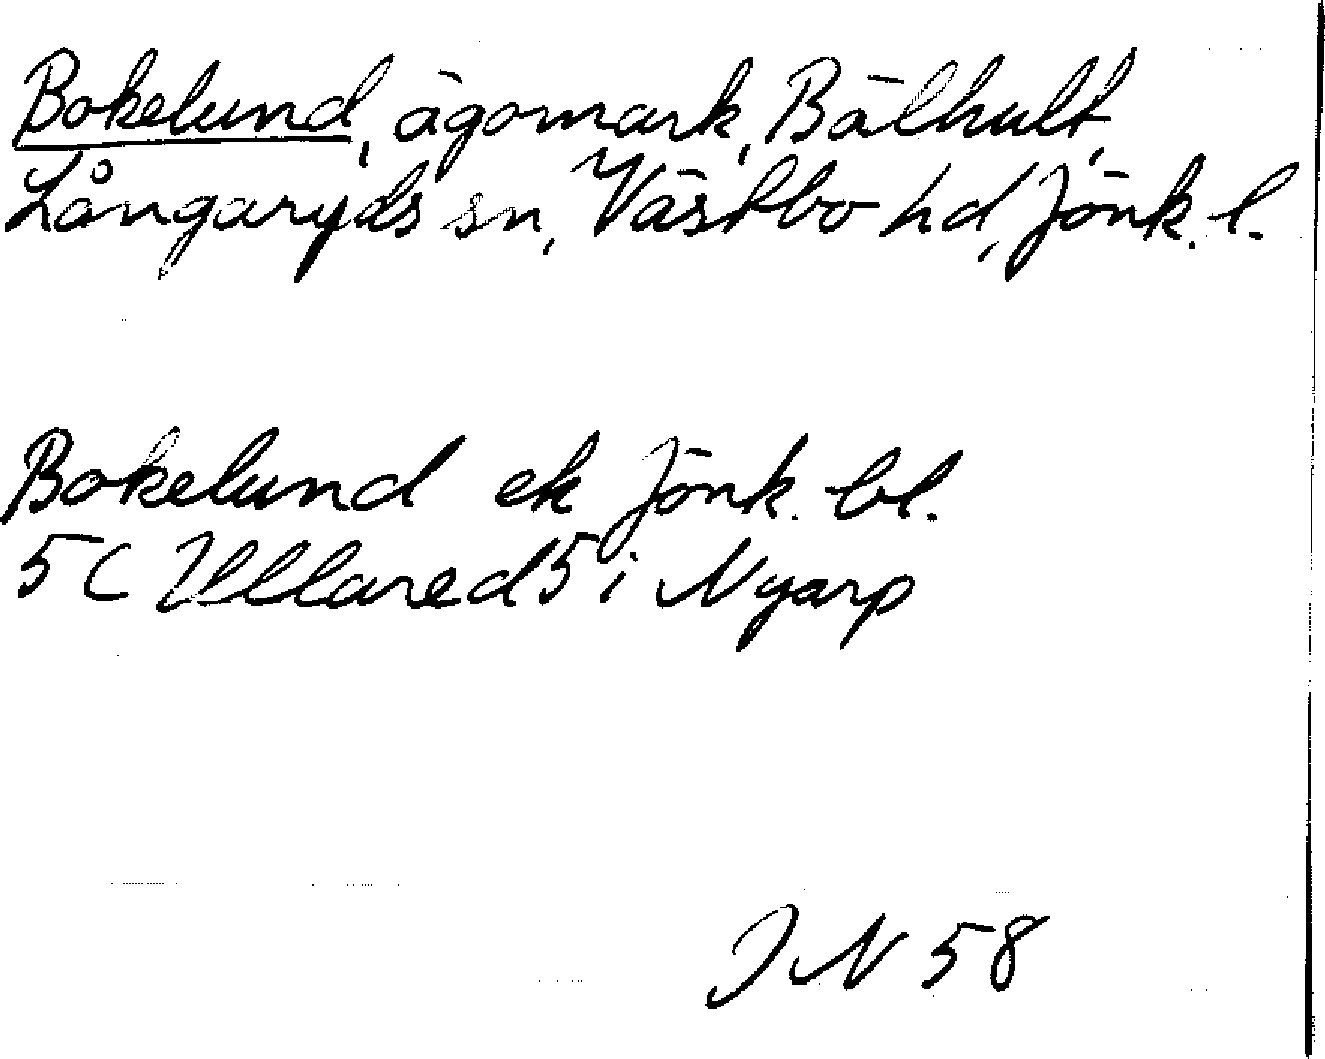 Bokelund, ägomark, Bälhult,
Långaryds sn, Västbo hd, Jönk. l.
Bokelund ek Jönk. bl.
5C Ullared 5i Nyarp
JN 58